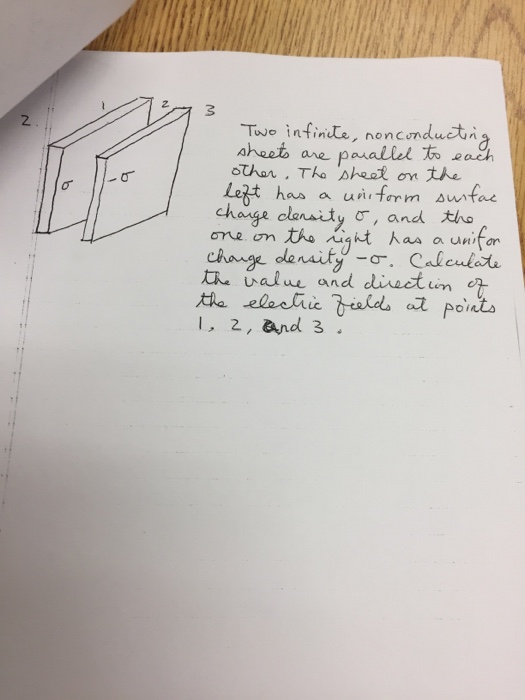 2.
1 2 3
σ -σ
Two infinite, nonconducting
sheets are parallel to each
other. The sheet on the
left has a uniform surfac
charge density σ, and the
one on the right has a unifor
charge density -σ. Calculate
the value and direction of
the electric fields at points
1, 2, and 3.